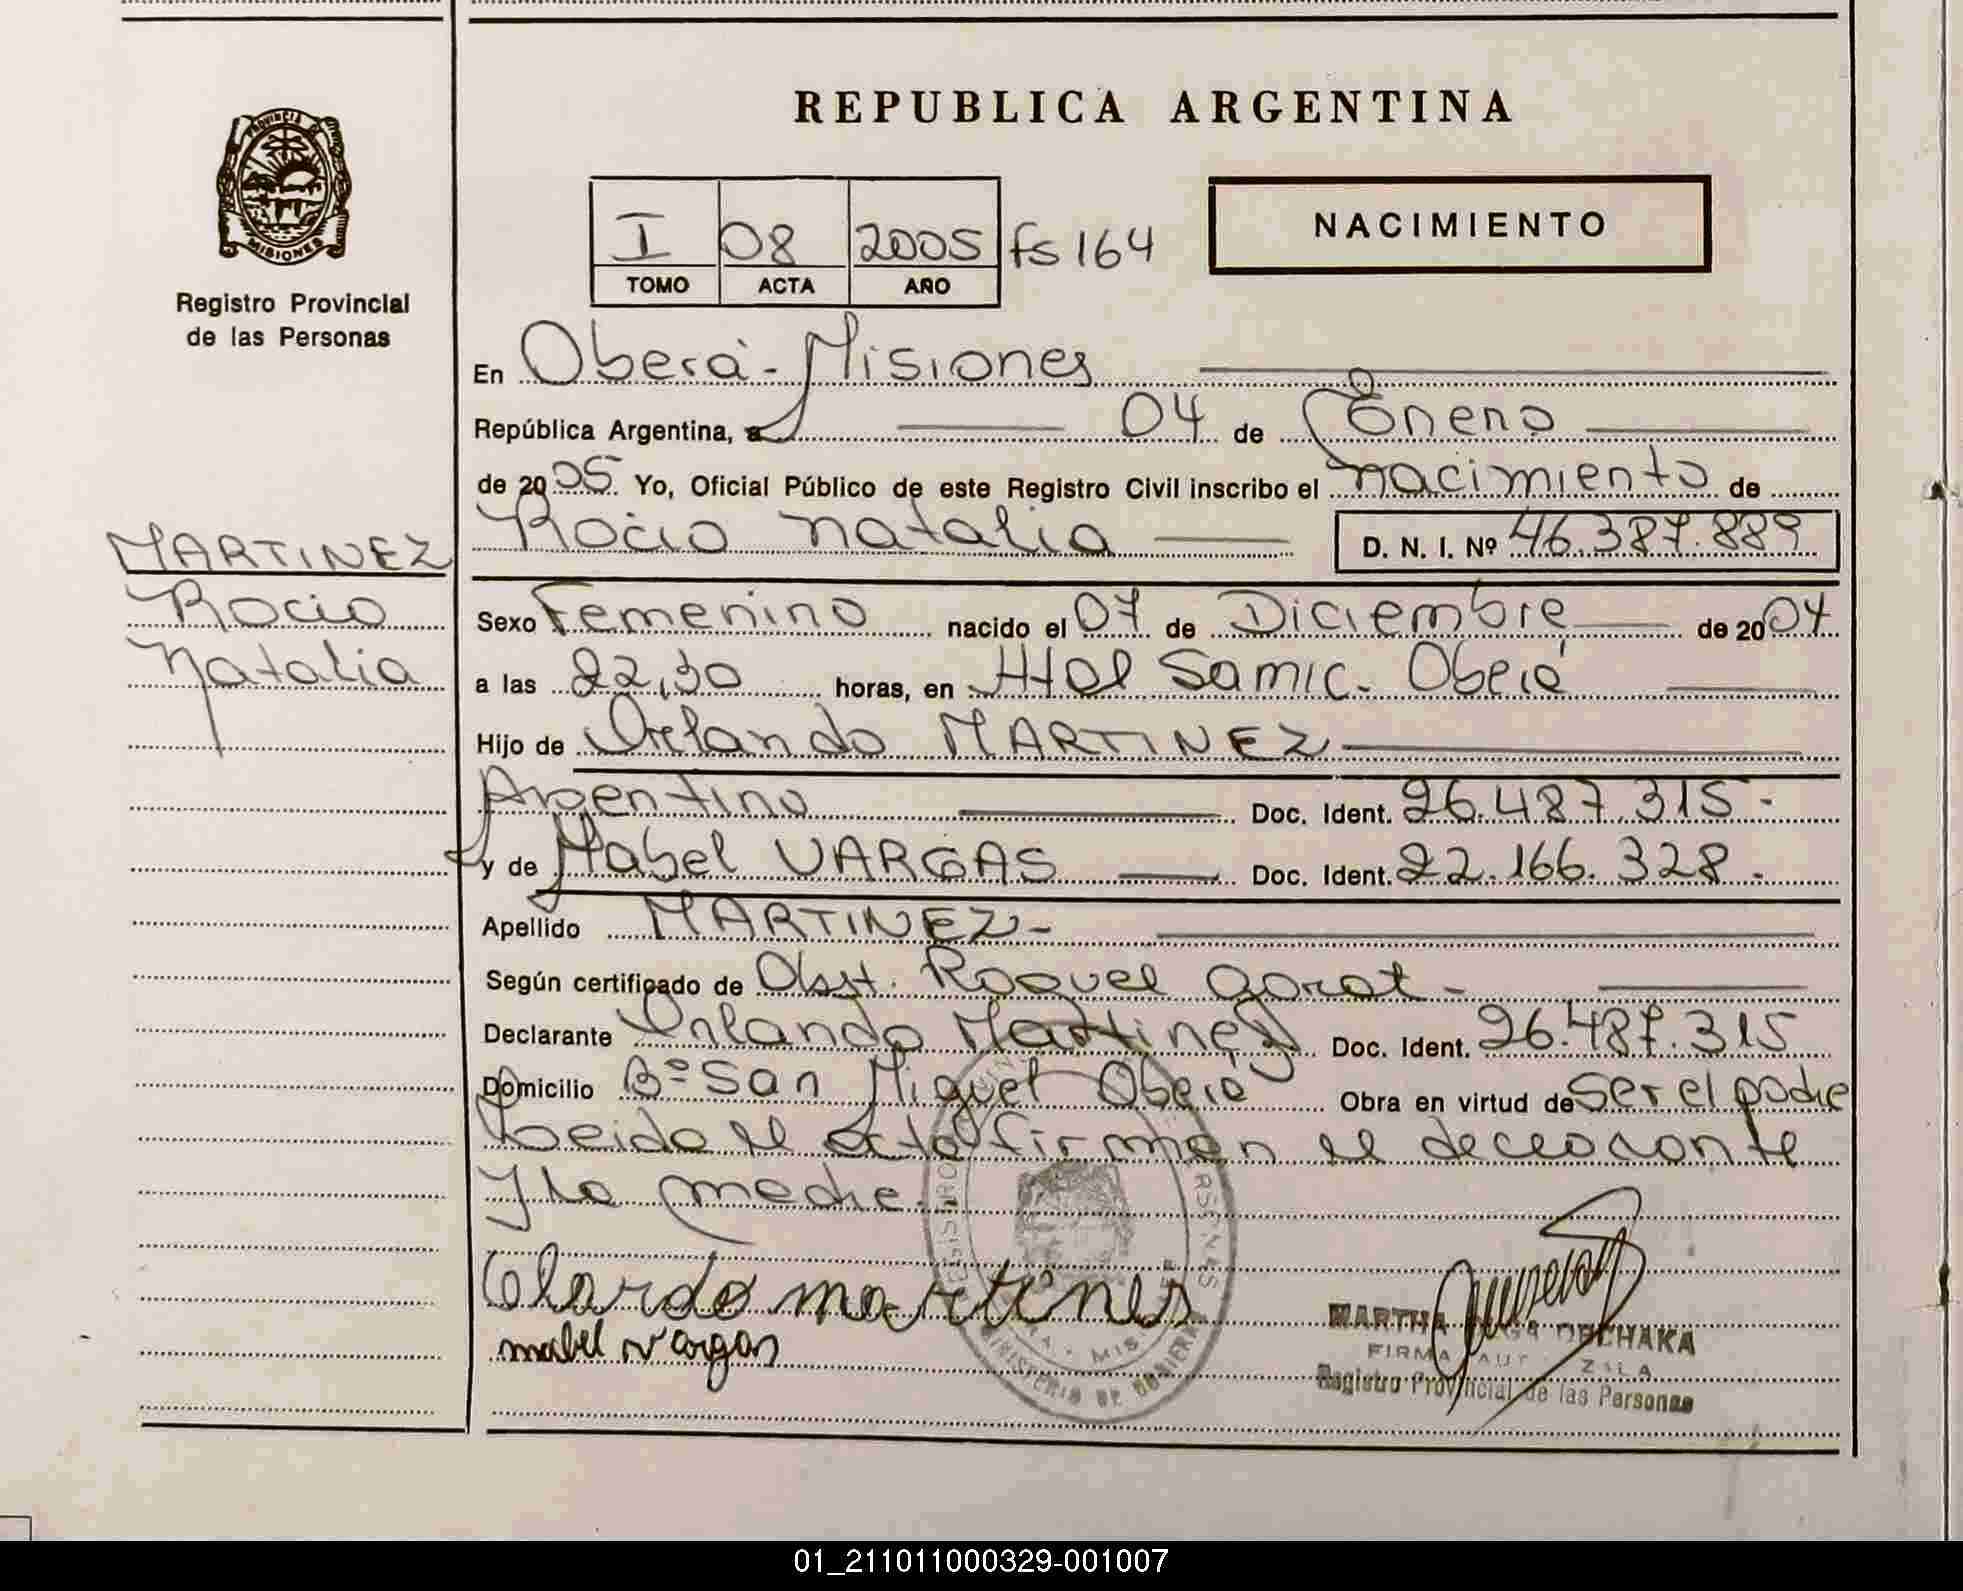 REPUBLICA ARGENTINA
PROVINCIA DE
MISIONES
Registro Provincial
de las Personas
I 08 2005 fs 164
TOMO ACTA AÑO
NACIMIENTO
En Oberá - Misiones
República Argentina, a 04 de Enero
de 2005 Yo, Oficial Público de este Registro Civil inscribo el nacimiento de
Rocio Natalia D. N. I. Nº 46.387.889
MARTINEZ
Rocio
Natalia
Sexo Femenino nacido el 07 de Diciembre de 2004
a las 22,30 horas, en Htal Samic. Oberá
Hijo de Orlando MARTINEZ
Argentino Doc. Ident. 26.487.315-
y de Mabel VARGAS Doc. Ident. 22.166.328.
Apellido MARTINEZ-
Según certificado de Obst. Raquel Gorat-
Declarante Orlando Martinez Doc. Ident. 26.487.315
Domicilio Bº San Miguel Oberá Obra en virtud de ser el padre
Leida el acta firman el declarante
y la madre.
martines
mabel vargas
MARTHA OLGA
FIRMA AUTORIZADA
Registro Provincial de las Personas
MINISTERIO DE GOBIERNO
01_211011000329-001007